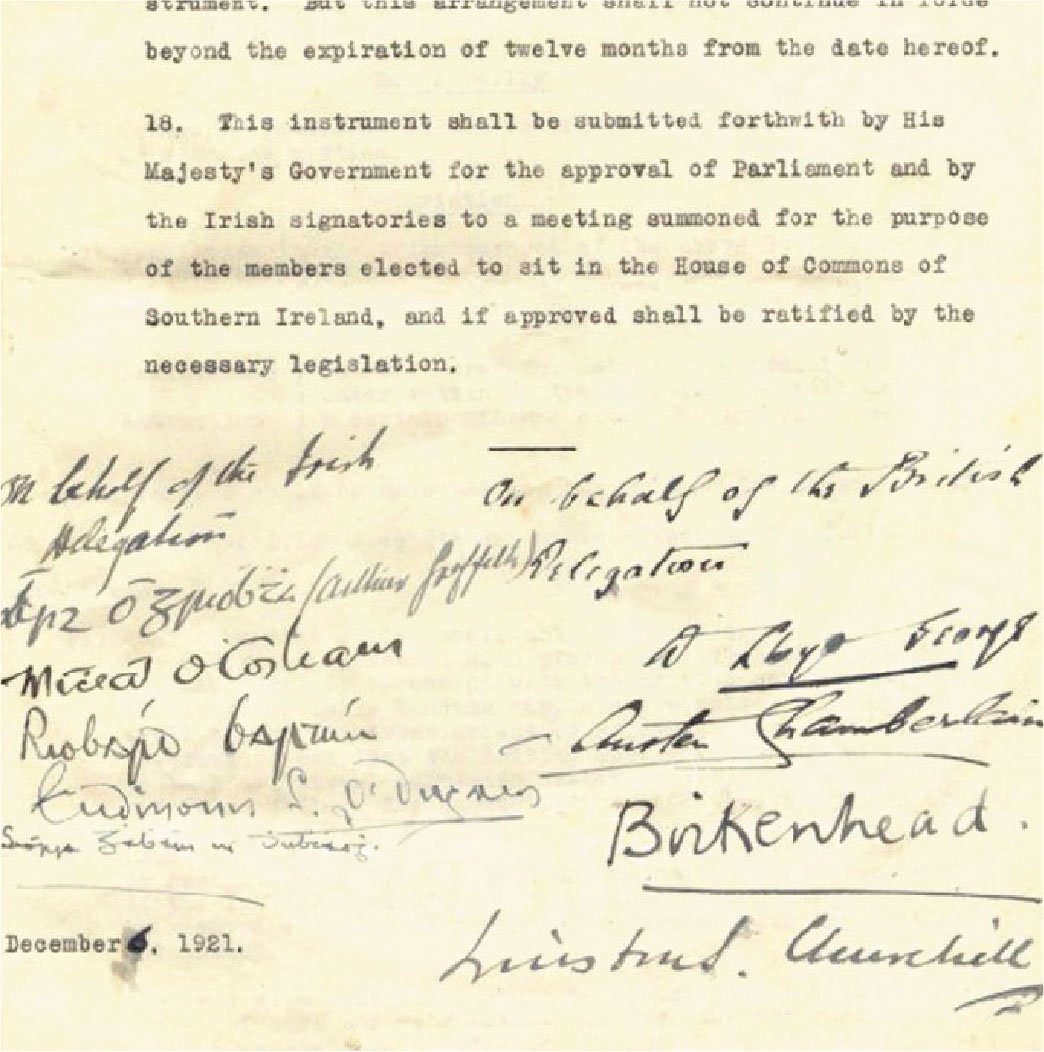 strument. But this arrangement shall not continue in force
beyond the expiration of twelve months from the date hereof.
18. This instrument shall be submitted forthwith by His
Majesty's Government for the approval of Parliament and by
the Irish signatories to a meeting summoned for the purpose
of the members elected to sit in the House of Commons of
Southern Ireland, and if approved shall be ratified by the
necessary legislation.
On behalf of the Irish
Delegation
Art Ó Gríoḃṫa (Arthur Griffith)
Miceál Ó Coileain
Riobárd Bartun
S. Ó
December 6. 1921.
On behalf of the British
Delegation
D Lloyd George
Austen Chamberlain
Birkenhead.
Winston S. Churchill